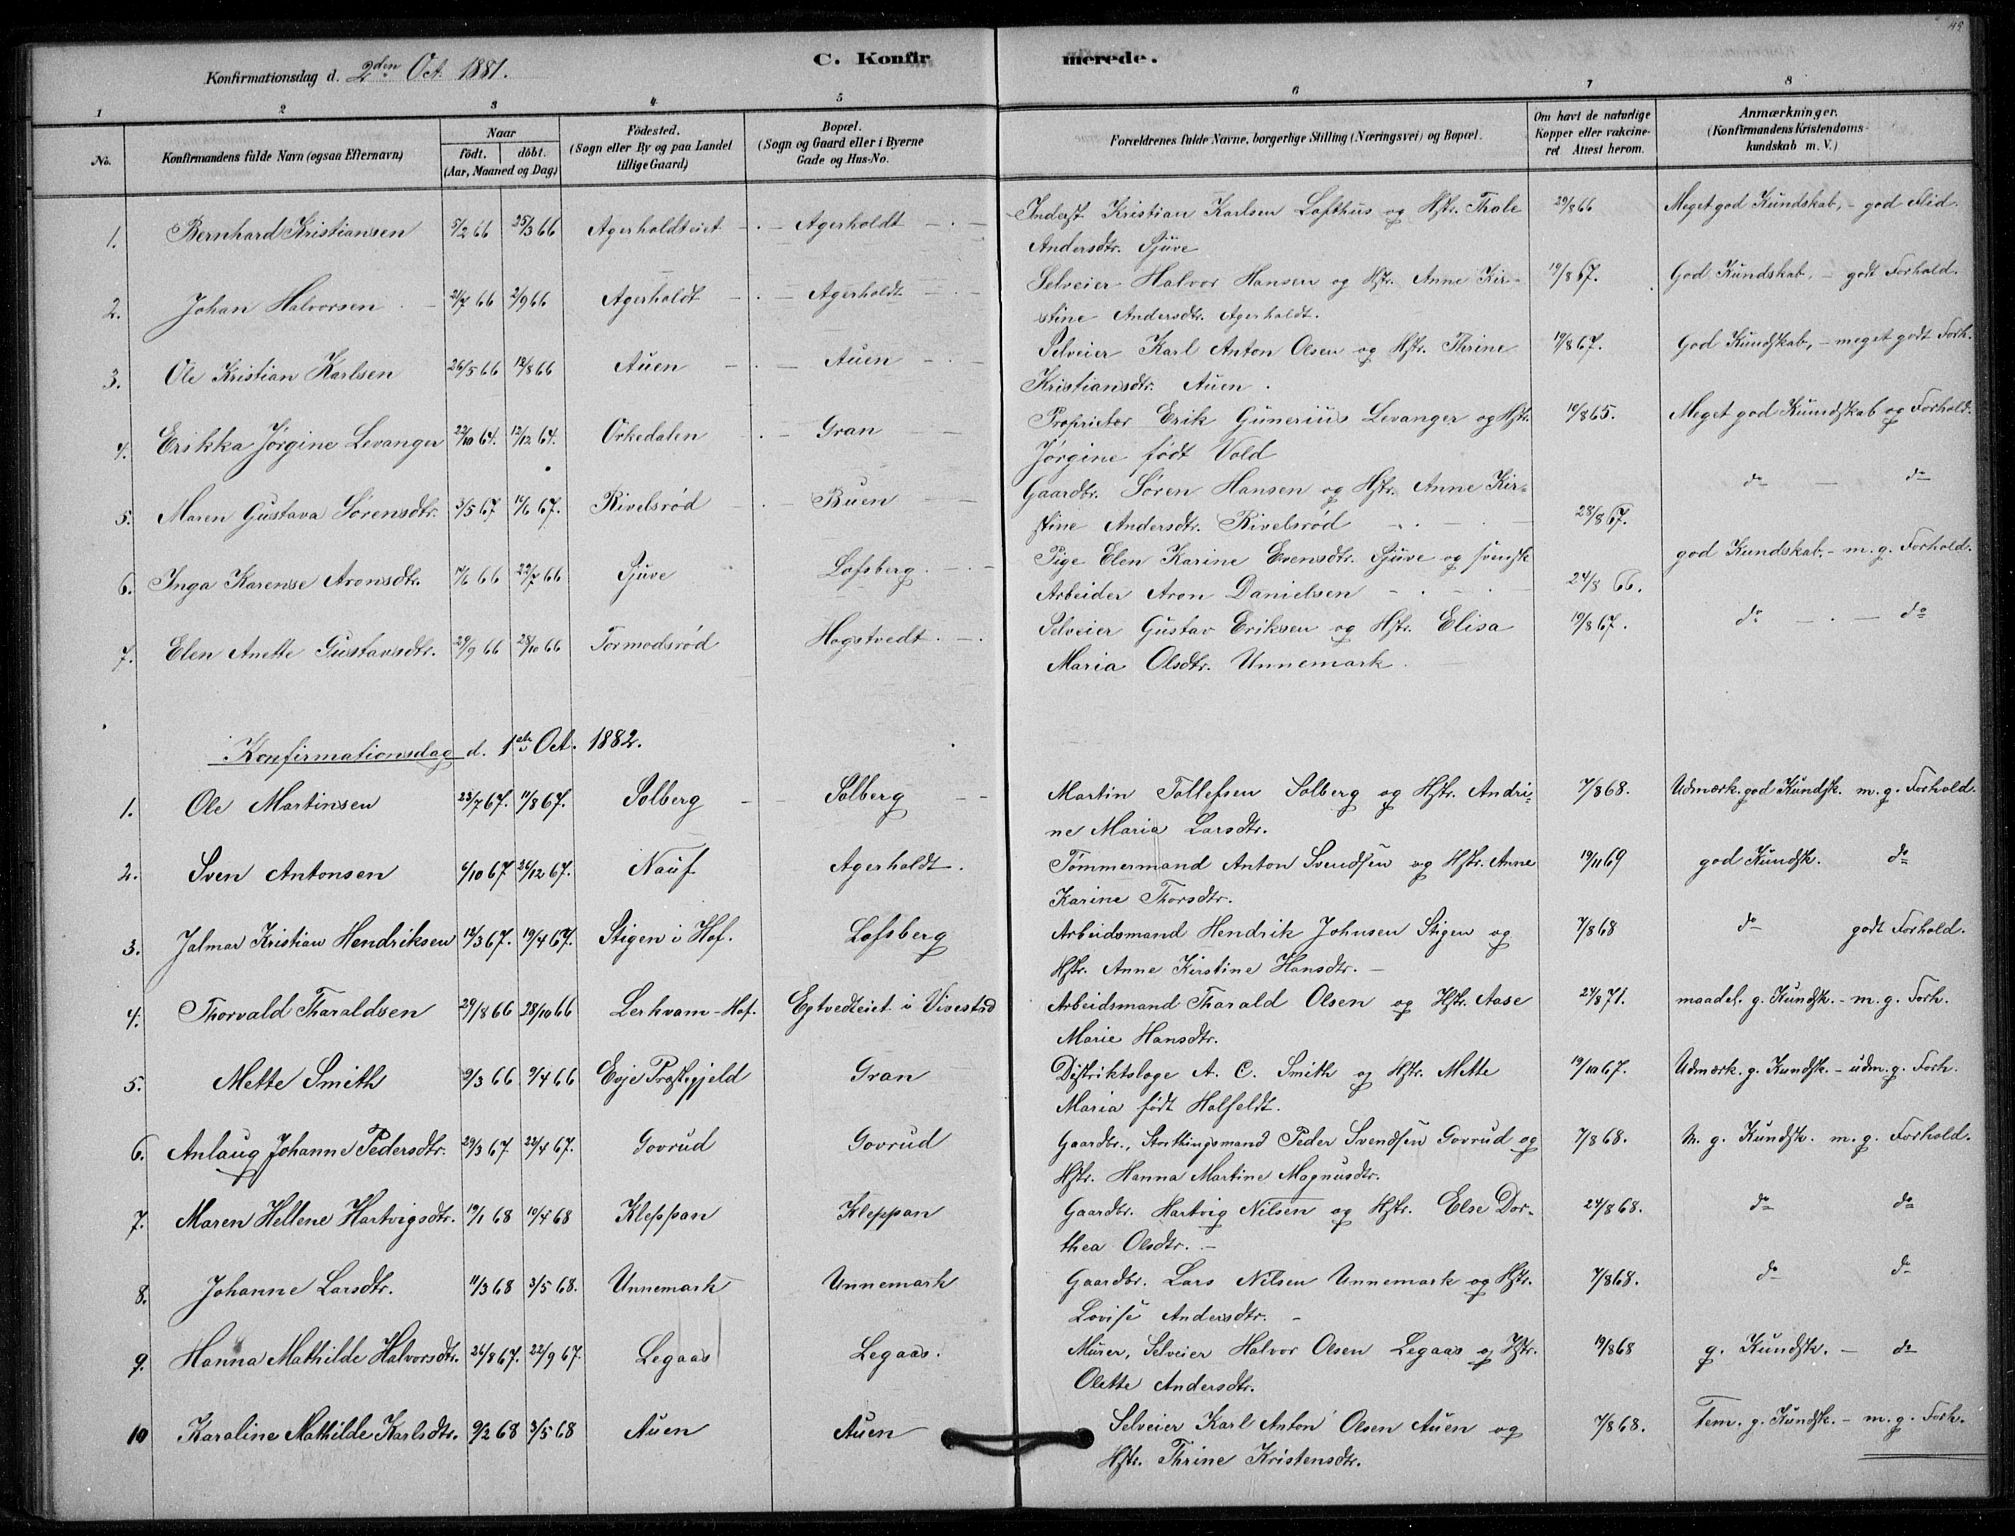 45
Konfirmationsdag d. 2den Oct. 1881.
C. Konfirmerede.
1 2 3 4 5 6 7 8
No.
Konfirmandens fulde Navn (ogsaa Efternavn)
Naar
født. døbt.
(Aar, Maaned og Dag)
Fødested.
(Sogn eller By og paa Landet
tillige Gaard)
Bopæl.
(Sogn og Gaard eller i Byerne
Gade og Hus-No.
Forældrenes fulde Navne, borgerlige Stilling (Næringsvei) og Bopæl.
Om havt de naturlige
Kopper eller vakcine-
ret Attest herom.
Anmærkninger.
(Konfirmandens Kristendoms-
kundskab m. V.)
1. Bernhard Kristiansen 5/2 66 25/3 66 Agerholdteiet - Agerholdt - Inderst Kristian Karlsen Lofthus og Hstr. Thale 29/8 66 Meget god Kundskab, - god Flid.
Andersdtr. Sjuve
2. Johan Halvorsen 21/7 66 2/9 66 Agerholdt - Agerholdt - Selveier Halvor Hansen og Hstr. Anne Kir- 19/8 67. God Kundskab, - godt Forhold.
stine Andersdtr. Agerholdt.
3. Ole Kristian Karlsen 26/5 66 12/8 66 Auen - Auen - Selveier Karl Anton Olsen og Hstr. Thrine 19/8 67. God Kundskab, - meget godt Forh.
Kristiansdtr. Auen.
4. Erikka Jørgine Levanger 22/10 64. 12/12 64. Orkedalen - Gran - Proprietør Erik Gunerius Levanger og Hstr. 19/8 65. Meget god Kundskab og Forhold.
Jørgine født Vold
5. Maren Gustava Sørensdtr. 3/5 67 16/6 67. Rivelsrød - Buen - Gaardbr. Søren Hansen og Hstr. Anne Kir- do - do
stine Andersdtr. Rivelsrød - 28/8 67.
6. Inga Karense Aronsdtr. 17/6 66 22/7 66 Sjuve Lofsberg. - Pige Elen Karine Evensdtr. Sjuve og svensk god Kundskab. - m. g. Forhold.
Arbeider Aron Danielsen - 24/8 66.
7. Elen Anette Gustavsdtr. 29/9 66 28/10 66 Tormodsrød Hogstvedt. - Selveier Gustav Eriksen og Hstr. Elisa 19/8 67. do - do
Maria Olsdtr. Unnemark.
Konfirmationsdag d. 1ste Oct. 1882.
1. Ole Martinsen 23/7 67. 11/8 67. Solberg - Solberg - Martin Tollefsen Solberg og Hstr. Andri- 7/8 68. Udmærk. god Kundsk. m. g. Forhold.
ne Maria Larsdtr.
2. Sven Antonsen 6/10 67 26/12 67. Nauf Agerholdt. Tømmermand Anton Svendsen og Hstr. Anne 19/11 69 god Kundsk. do
Karine Thorsdtr.
3. Jalmar Kristian Hendriksen 12/3 67. 19/4 67. Stigen i Hof. Lofsberg Arbeidsmand Hendrik Johnsen Stigen og 7/8 68 do godt Forhold.
Hstr. Anne Kirstine Hansdtr. -
4. Thorvald Tharaldsen 29/8 66 28/10 66 Lerhvam - Hof. Egtvedteiet i Vivestad Arbeidsmand Tharald Olsen og Hstr. Aase 24/8 71. maadel. g. Kundsk. - m. g. Forh.
Marie Hansdtr.
5. Mette Smith 9/3 66 9/4 66 Evje Præstegjeld Gran Distriktslæge A. C. Smith og Hstr. Mette 19/10 67. Udmærk. g. Kundsk. - udm. g. Forh.
Maria født Holfeldt.
6. Anlaug Johanne Pedersdtr. 29/3 67. 22/4 67. Govrud Govrud Gaardbr., Storthingsmand Peder Svendsen Govrud og 7/8 68. M. g. Kundsk. m. g. Forhold.
Hstr. Hanna Martine Magnusdtr.
7. Maren Hellene Hartvigsdtr. 19/1 68 19/4 68 Kleppan Kleppan Gaardbr. Hartvig Nilsen og Hstr. Else Dor- 24/8 68. do do
thea Olsdtr. -
8. Johanne Larsdtr. 11/3 68 3/5 68. Unnemark Unnemark Gaardbr. Lars Nilsen Unnemark og Hstr. 7/8 68. do do
Lovise Andersdtr. -
9. Hanna Mathilde Halvorsdtr. 26/8 67. 22/9 67. Legaas Legaas. Murer, Selveier Halvor Olsen Legaas og Hstr. 19/8 68 g. Kundsk. - do
Olette Andersdtr.
10 Karaline Mathilde Karlsdtr. 9/2 68 3/5 68 Auen Auen Selveier Karl Anton Olsen Auen og 7/8 68. Tem. g. Kundsk. - m. g. Forh.
Hstr. Thrine Kristensdtr.